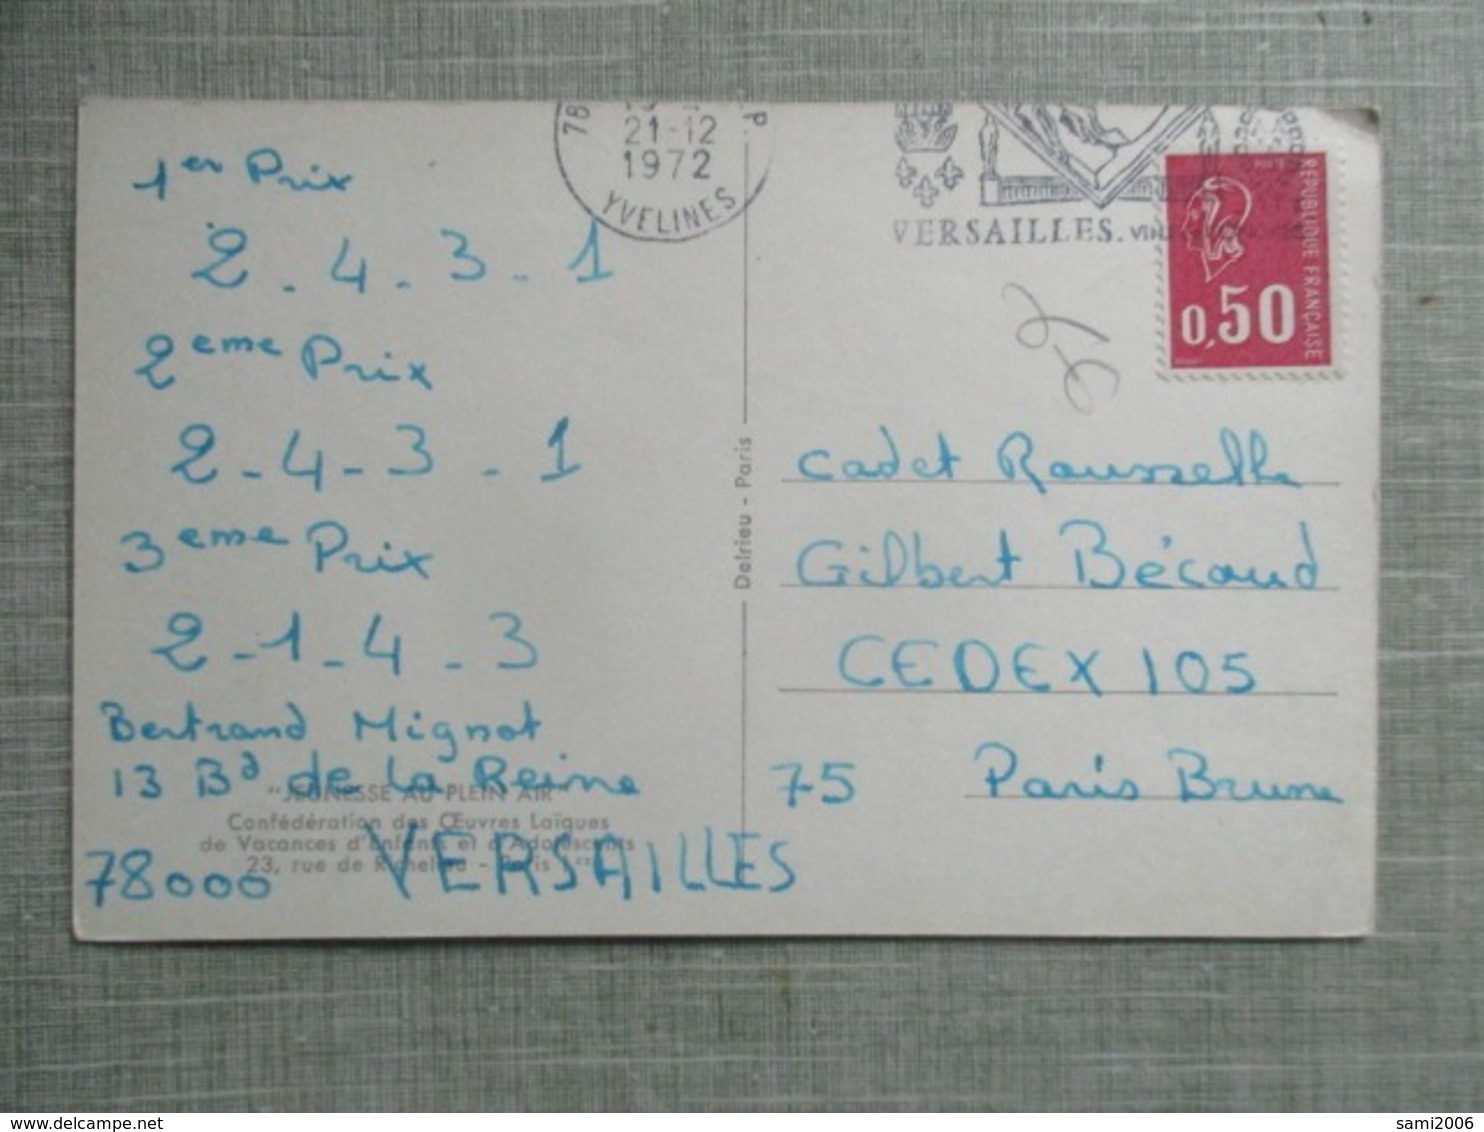 1er Prix
2 - 4 - 3 - 1
2eme Prix
2 - 4 - 3 - 1
3eme Prix
2 - 1 - 4 - 3
Bertrand Mignot
13 Bd de la Reine
78000 VERSAILLES
"JEUNESSE AU PLEIN AIR"
Confédération des Œuvres Laïques
de Vacances d'Enfants et d'Adolescents
23, rue de Richelieu - Paris 1er
Delrieu - Paris
78
21-12
1972
YVELINES
VERSAILLES.
REPUBLIQUE FRANÇAISE
0,50
Cadet Rousselle
Gilbert Bécaud
CEDEX 105
75 Paris Brune
sami2006